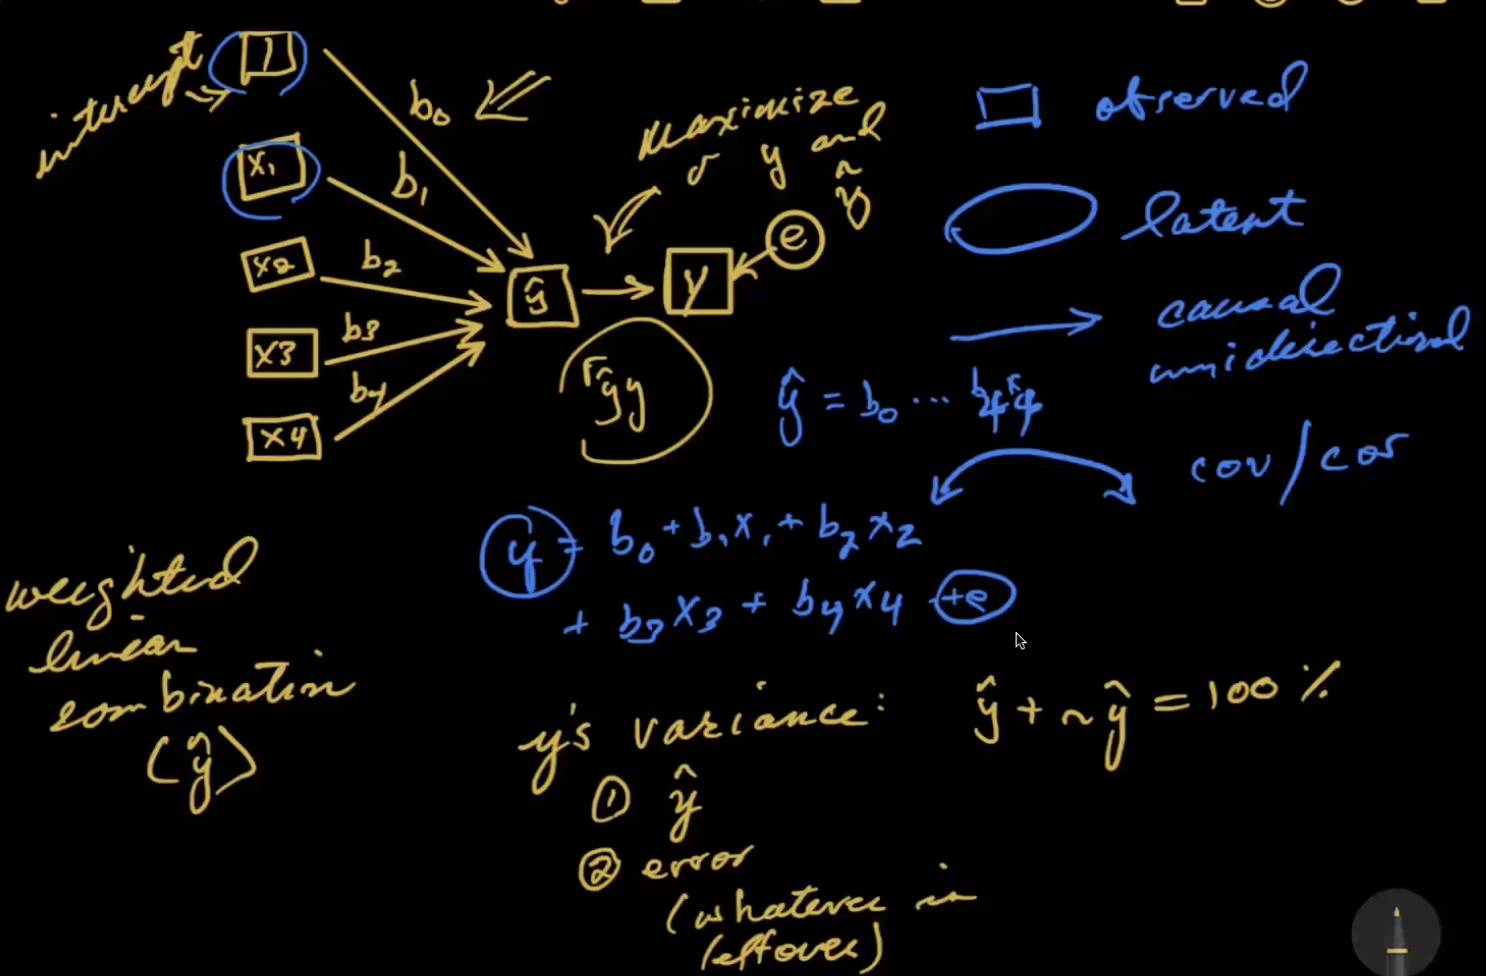 intercept
1
b₀
x₁
b₁
x2
b₂
x3
b3
x4
b4
ŷ
y
e
maximize
r y and
ŷ
rŷy
observed
latent
causal
unidirectional
ŷ = b₀ ... b4x4
cov/cor
y = b₀ + b₁x₁ + b₂x₂
+ b₃x₃ + b₄x₄ +e
weighted
linear
combination
(ŷ)
y's variance:
ŷ + ~ŷ = 100 %
① ŷ
② error
(whatever is
leftover)